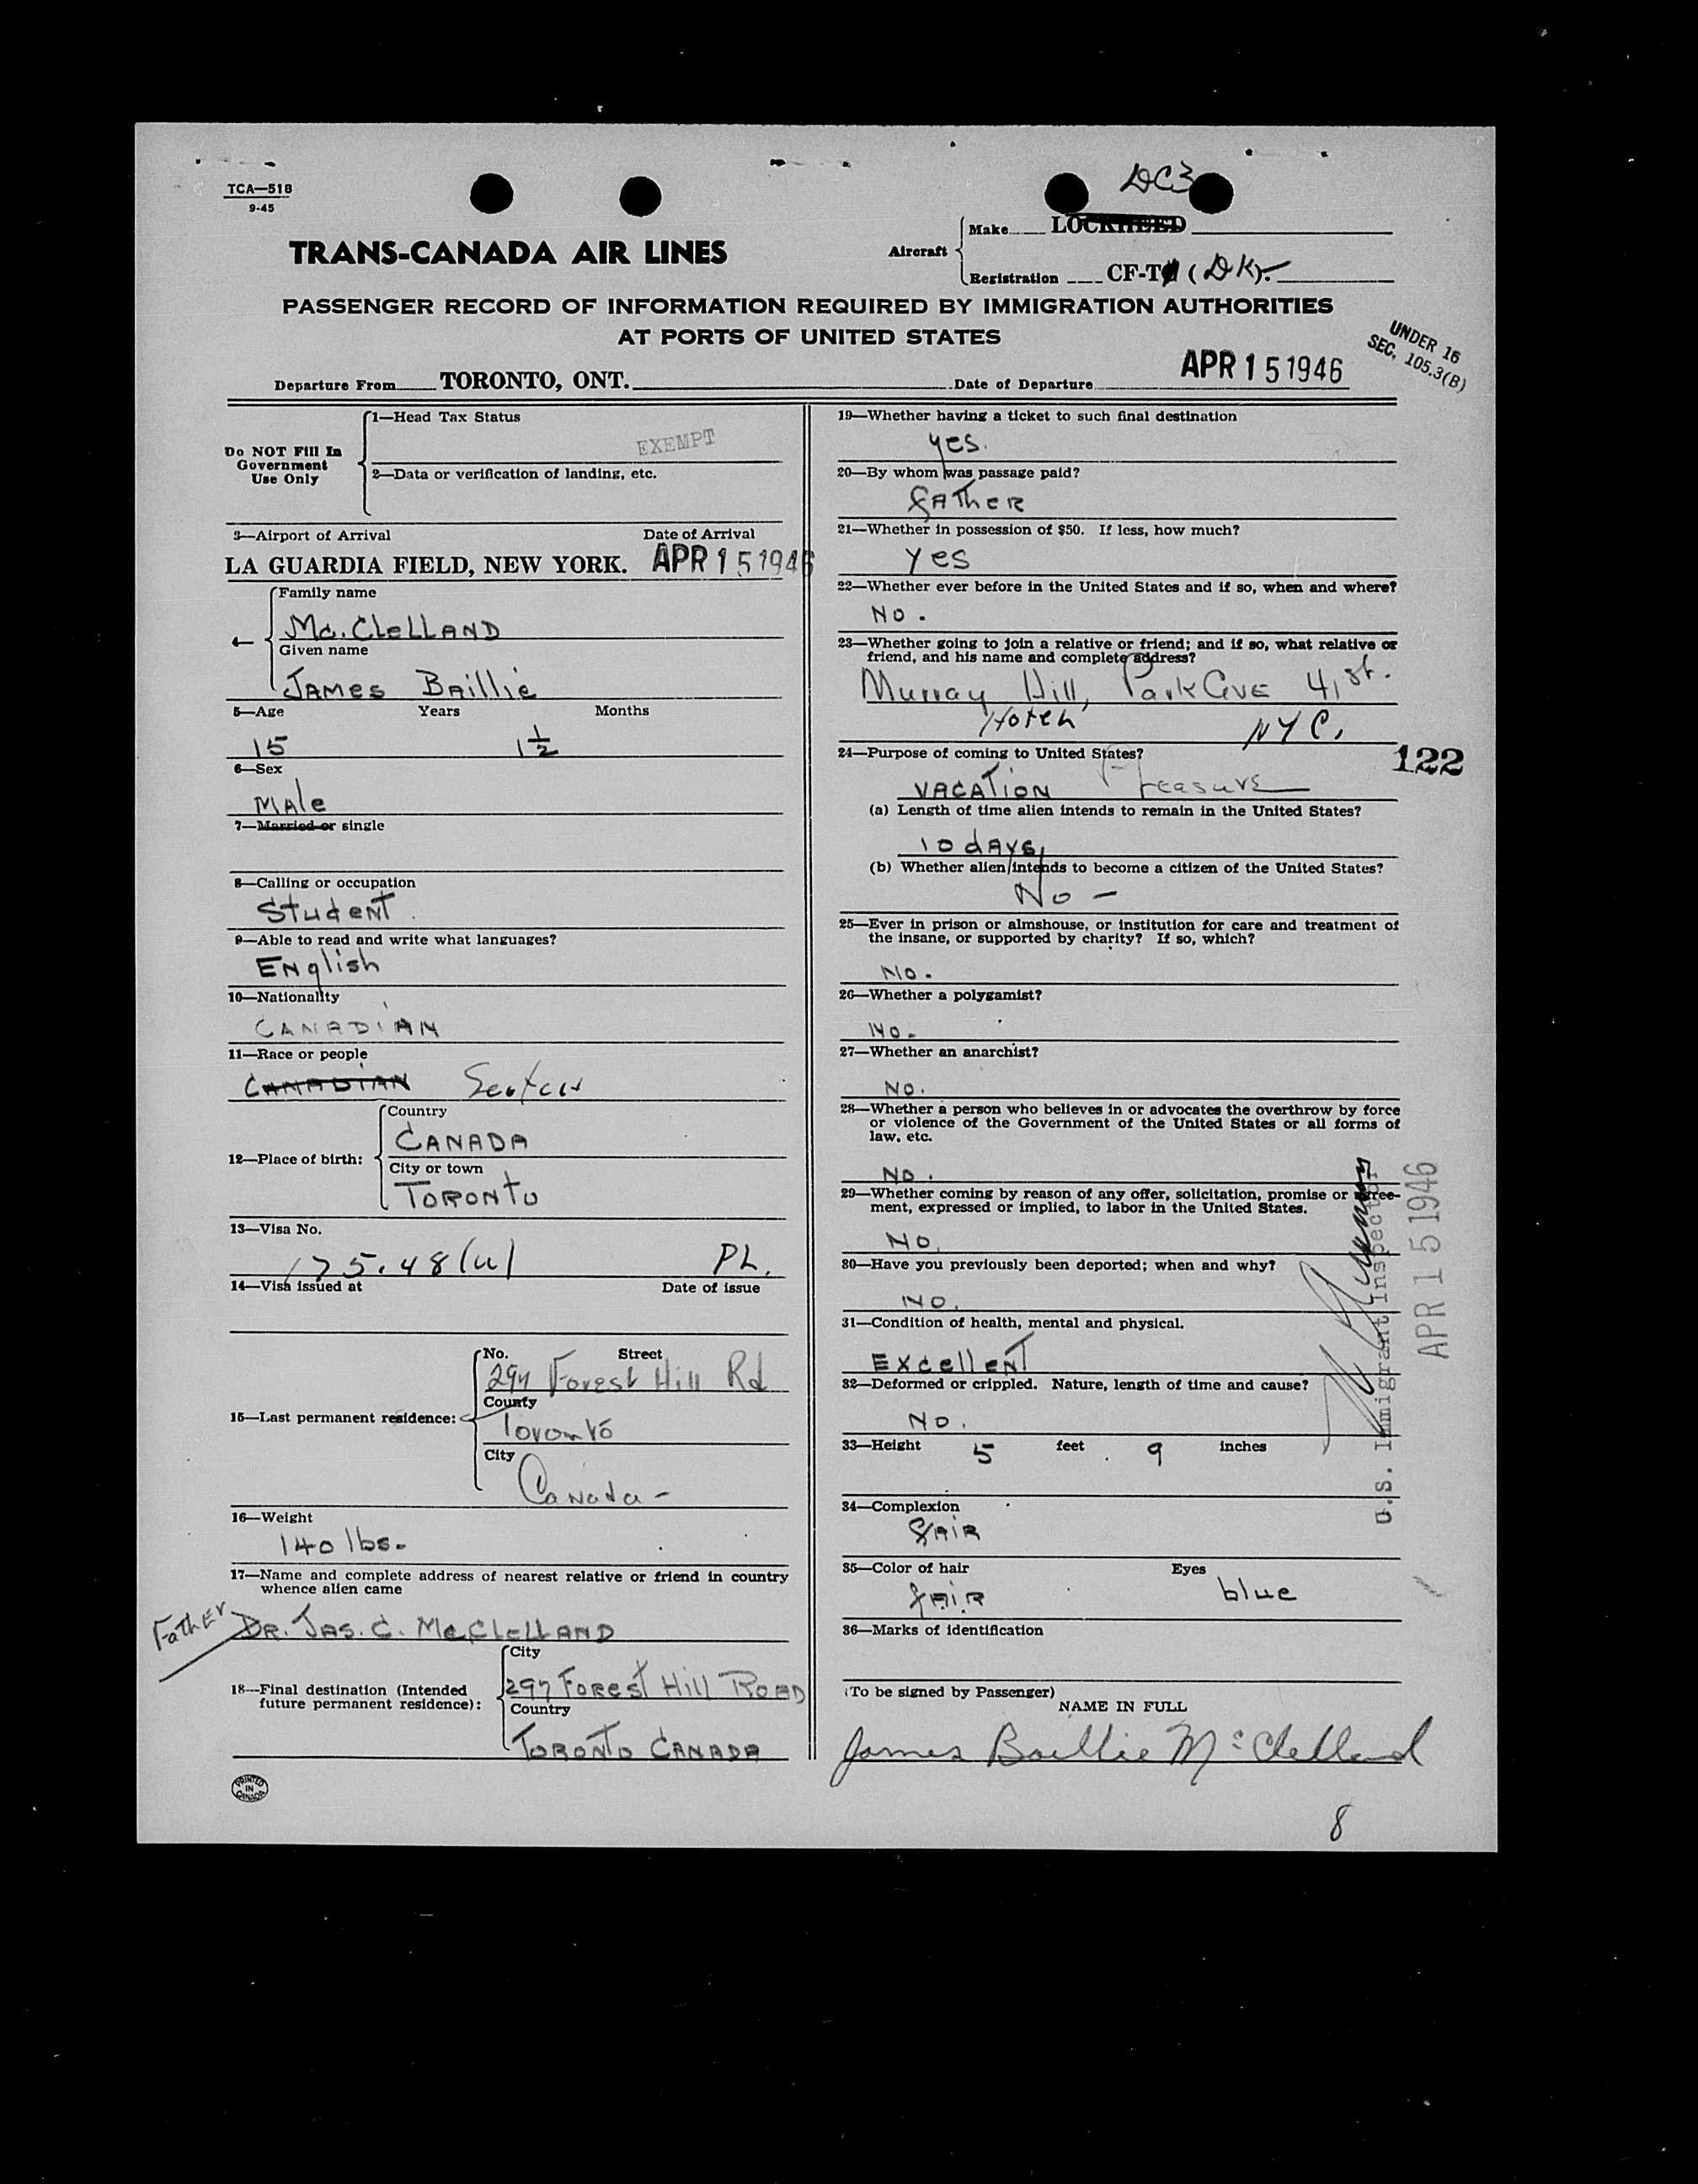 DC3
TCA—518
9-45
TRANS-CANADA AIR LINES
Aircraft
Make LOCKHEED
Registration CF-T (DK).
PASSENGER RECORD OF INFORMATION REQUIRED BY IMMIGRATION AUTHORITIES
AT PORTS OF UNITED STATES
UNDER 16
SEC. 105.3(B)
Departure From TORONTO, ONT. Date of Departure APR 15 1946
Do NOT Fill In
Government
Use Only
1—Head Tax Status
EXEMPT
2—Data or verification of landing, etc.
3—Airport of Arrival Date of Arrival
LA GUARDIA FIELD, NEW YORK. APR 15 1946
4—
Family name
Mc.Clelland
Given name
James Baillie
5—Age Years Months
15 1½
6—Sex
Male
7—Married or single
8—Calling or occupation
Student.
9—Able to read and write what languages?
English
10—Nationality
CANADIAN
11—Race or people
CANADIAN Scotch
12—Place of birth:
Country
CANADA
City or town
TORONTO
13—Visa No.
175.48(u) PL.
14—Visa issued at Date of issue
15—Last permanent residence:
No. Street
297 Forest Hill Rd
County
Toronto
City
Canada -
16—Weight
140 lbs.
17—Name and complete address of nearest relative or friend in country
whence alien came
Father DR. JAS. C. McClelland
18—Final destination (Intended
future permanent residence):
City
297 Forest Hill Road
Country
TORONTO CANADA
PRINTED
IN
CANADA
19—Whether having a ticket to such final destination
yes.
20—By whom was passage paid?
father
21—Whether in possession of $50. If less, how much?
yes
22—Whether ever before in the United States and if so, when and where?
No.
23—Whether going to join a relative or friend; and if so, what relative or
friend, and his name and complete address?
Murray Hill, Park Ave 41st.
Hotel NYC.
24—Purpose of coming to United States?
122
VACATION Pleasure
(a) Length of time alien intends to remain in the United States?
10 days
(b) Whether alien intends to become a citizen of the United States?
No -
25—Ever in prison or almshouse, or institution for care and treatment of
the insane, or supported by charity? If so, which?
No.
26—Whether a polygamist?
No.
27—Whether an anarchist?
No.
28—Whether a person who believes in or advocates the overthrow by force
or violence of the Government of the United States or all forms of
law, etc.
No.
29—Whether coming by reason of any offer, solicitation, promise or agree-
ment, expressed or implied, to labor in the United States.
No.
30—Have you previously been deported; when and why?
No.
31—Condition of health, mental and physical.
Excellent
32—Deformed or crippled. Nature, length of time and cause?
No.
33—Height 5 feet 9 inches
34—Complexion
fair
35—Color of hair Eyes
fair blue
36—Marks of identification
(To be signed by Passenger)
NAME IN FULL
James Baillie McClelland
U.S. Immigrant Inspector
APR 15 1946
8